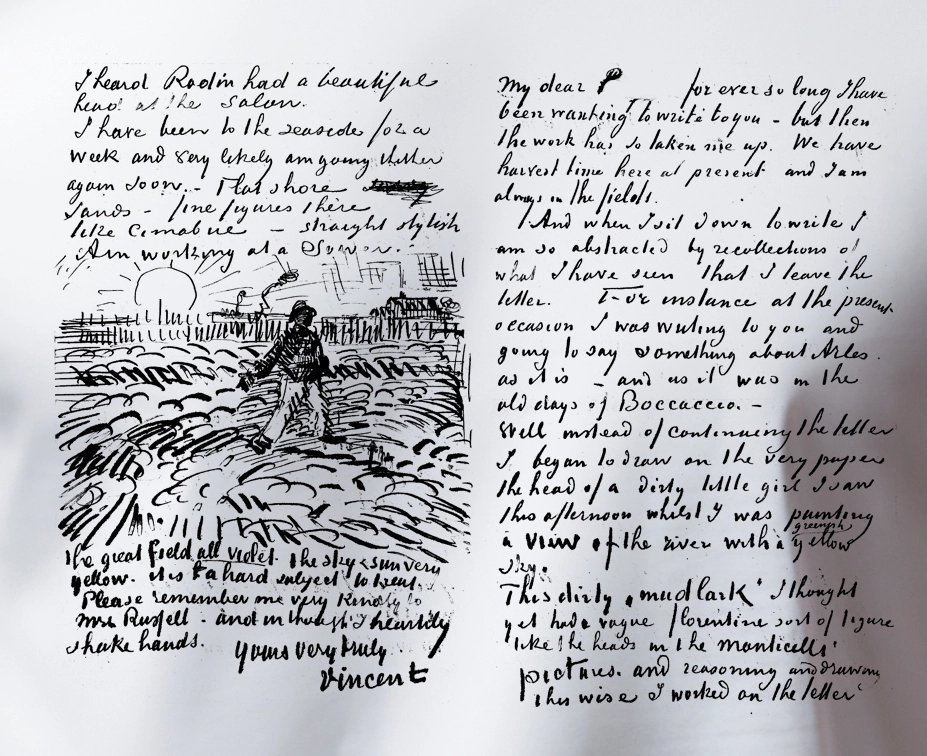 I heard Rodin had a beautiful
head at the Salon.
I have been to the seaside for a
week and very likely am going thither
again soon. - Flat shore
sands - fine figures there
like Cimabue - straight stylish
Am working at a Sower.
the great field all violet. the sky & sun very
yellow. it is a hard subject to treat.
Please remember me very kindly to
Mrs Russell - and in thought I heartily
shake hands.
yours very truly
Vincent
My dear for ever so long I have
been wanting to write to you - but then
the work has so taken me up. We have
harvest time here at present and I am
always in the fields.
And when I sit down to write I
am so abstracted by recollections of
what I have seen that I leave the
letter. For instance at the present
occasion I was writing to you and
going to say something about Arles
as it is - and as it was in the
old days of Boccaccio. -
Well instead of continuing the letter
I began to draw on the very paper
the head of a dirty little girl I saw
this afternoon whilst I was painting
greenish
a view of the river with a yellow
sky.
This dirty „mudlark" I thought
yet had a vague florentine sort of figure
like the heads in the monticelli
pictures. and reasoning and drawing
this wise I worked on the letter